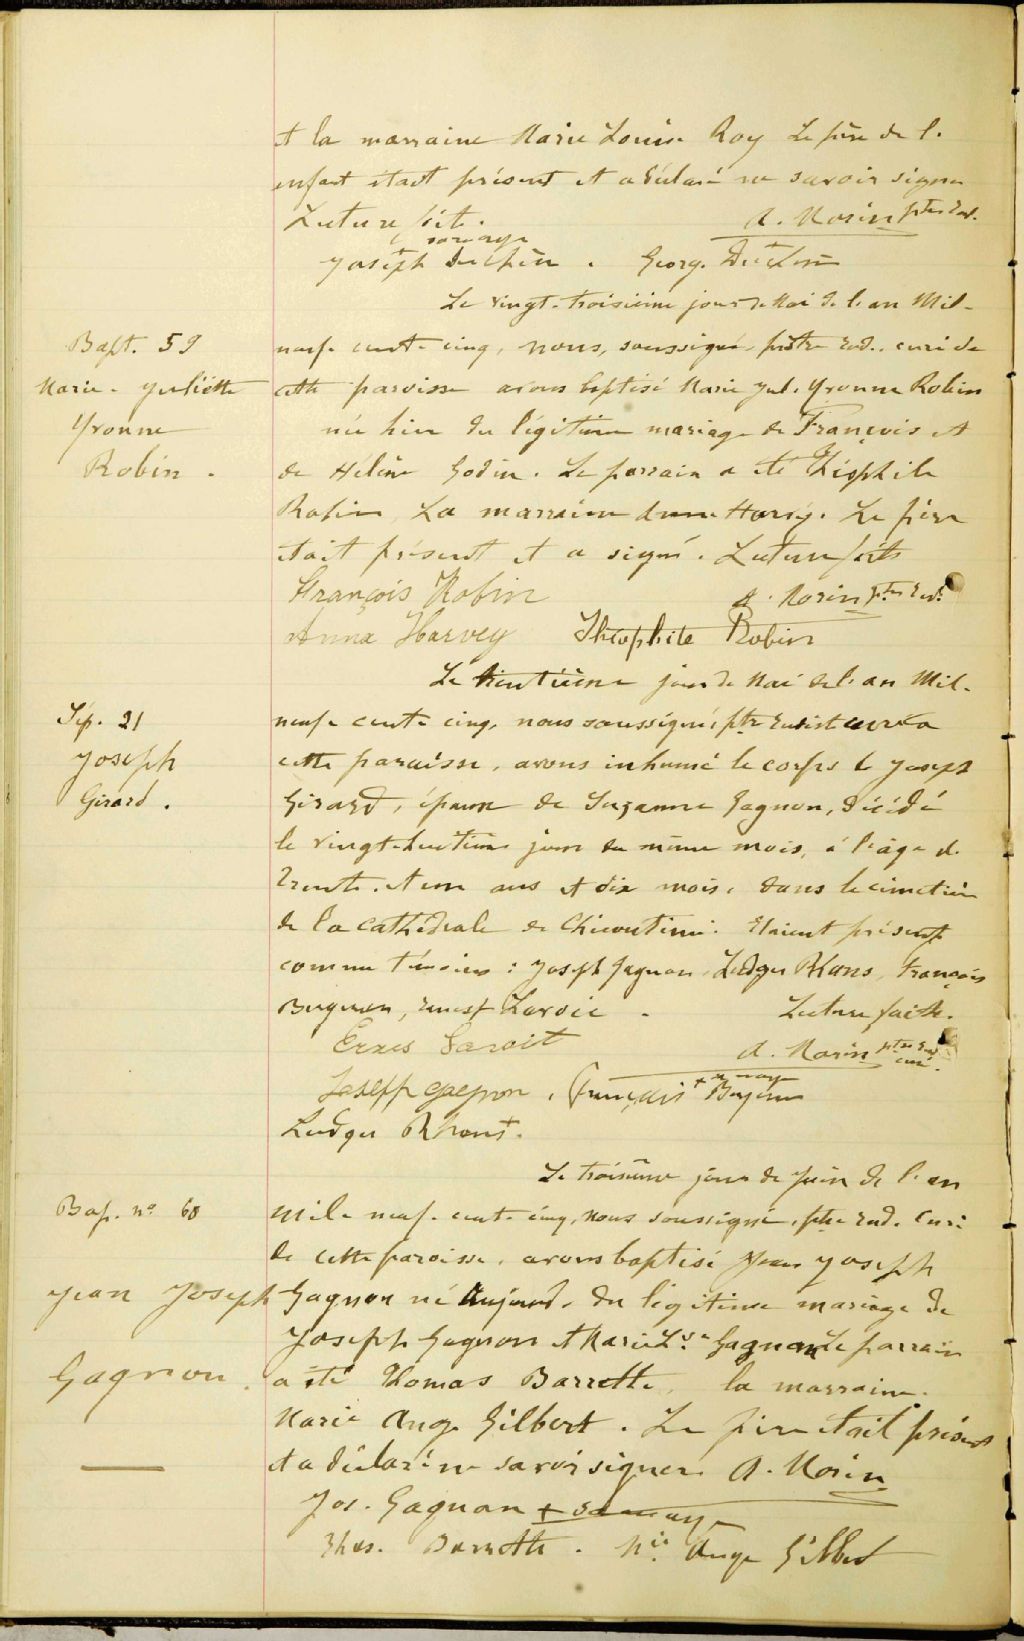 et la marraine Marie Louise Roy Le père de l'
enfant était présent et a déclaré ne savoir signer
Lecture faite. A. Morin ptre
Joseph Duchêne. George Duchesne
Le vingt-troisième jour de Mai de l'an Mil-
Bapt. 59
neuf cent-cinq, nous, soussigné, prêtre curé de
Marie-Juliette
cette paroisse avons baptisé Marie Jul. Yvonne Robin
Yvonne
née hier du légitime mariage de François et
Robin.
de Hélène Godin. Le parrain a été Théophile
Robin, La marraine Harvey. Le père
était présent et a signé. Lecture faite
François Robin A. Morin ptre
Anna Harvey Théophile Robin
Le trentième jour de Mai de l'an Mil-
Sép. 21
neuf cent-cinq, nous soussigné, ptre
Joseph
cette paroisse, avons inhumé le corps de Joseph
Girard.
Girard, époux de Suzanne Gagnon, décédé
le vingt-huitième jour du même mois, à l'âge de
trente et un ans et dix mois, dans le cimetière
de la cathédrale de Chicoutimi. Etaient présents
comme témoins : Joseph Gagnon, Ludger, François
Ernest Lavoie. Lecture faite.
A. Morin ptre curé.
Joseff gagnon, François
Ludger
Le troisième jour de Juin de l'an
Bap. no 60
Mil-neuf-cent-cinq, nous soussigné, ptre curé
de cette paroisse, avons baptisé Jean Joseph
Jean Joseph
Gagnon né Aujourd. du légitime mariage de
Joseph Gagnon et Marie Lse Gagnon Le parrain
Gagnon.
a été Thomas Barrette, la marraine
Marie Ange Gilbert. Le père était présent
et a déclaré ne savoir signer. A. Morin
Jos. Gagnon + sa marque
Thos. Barrette. Mie Ange Gilbert